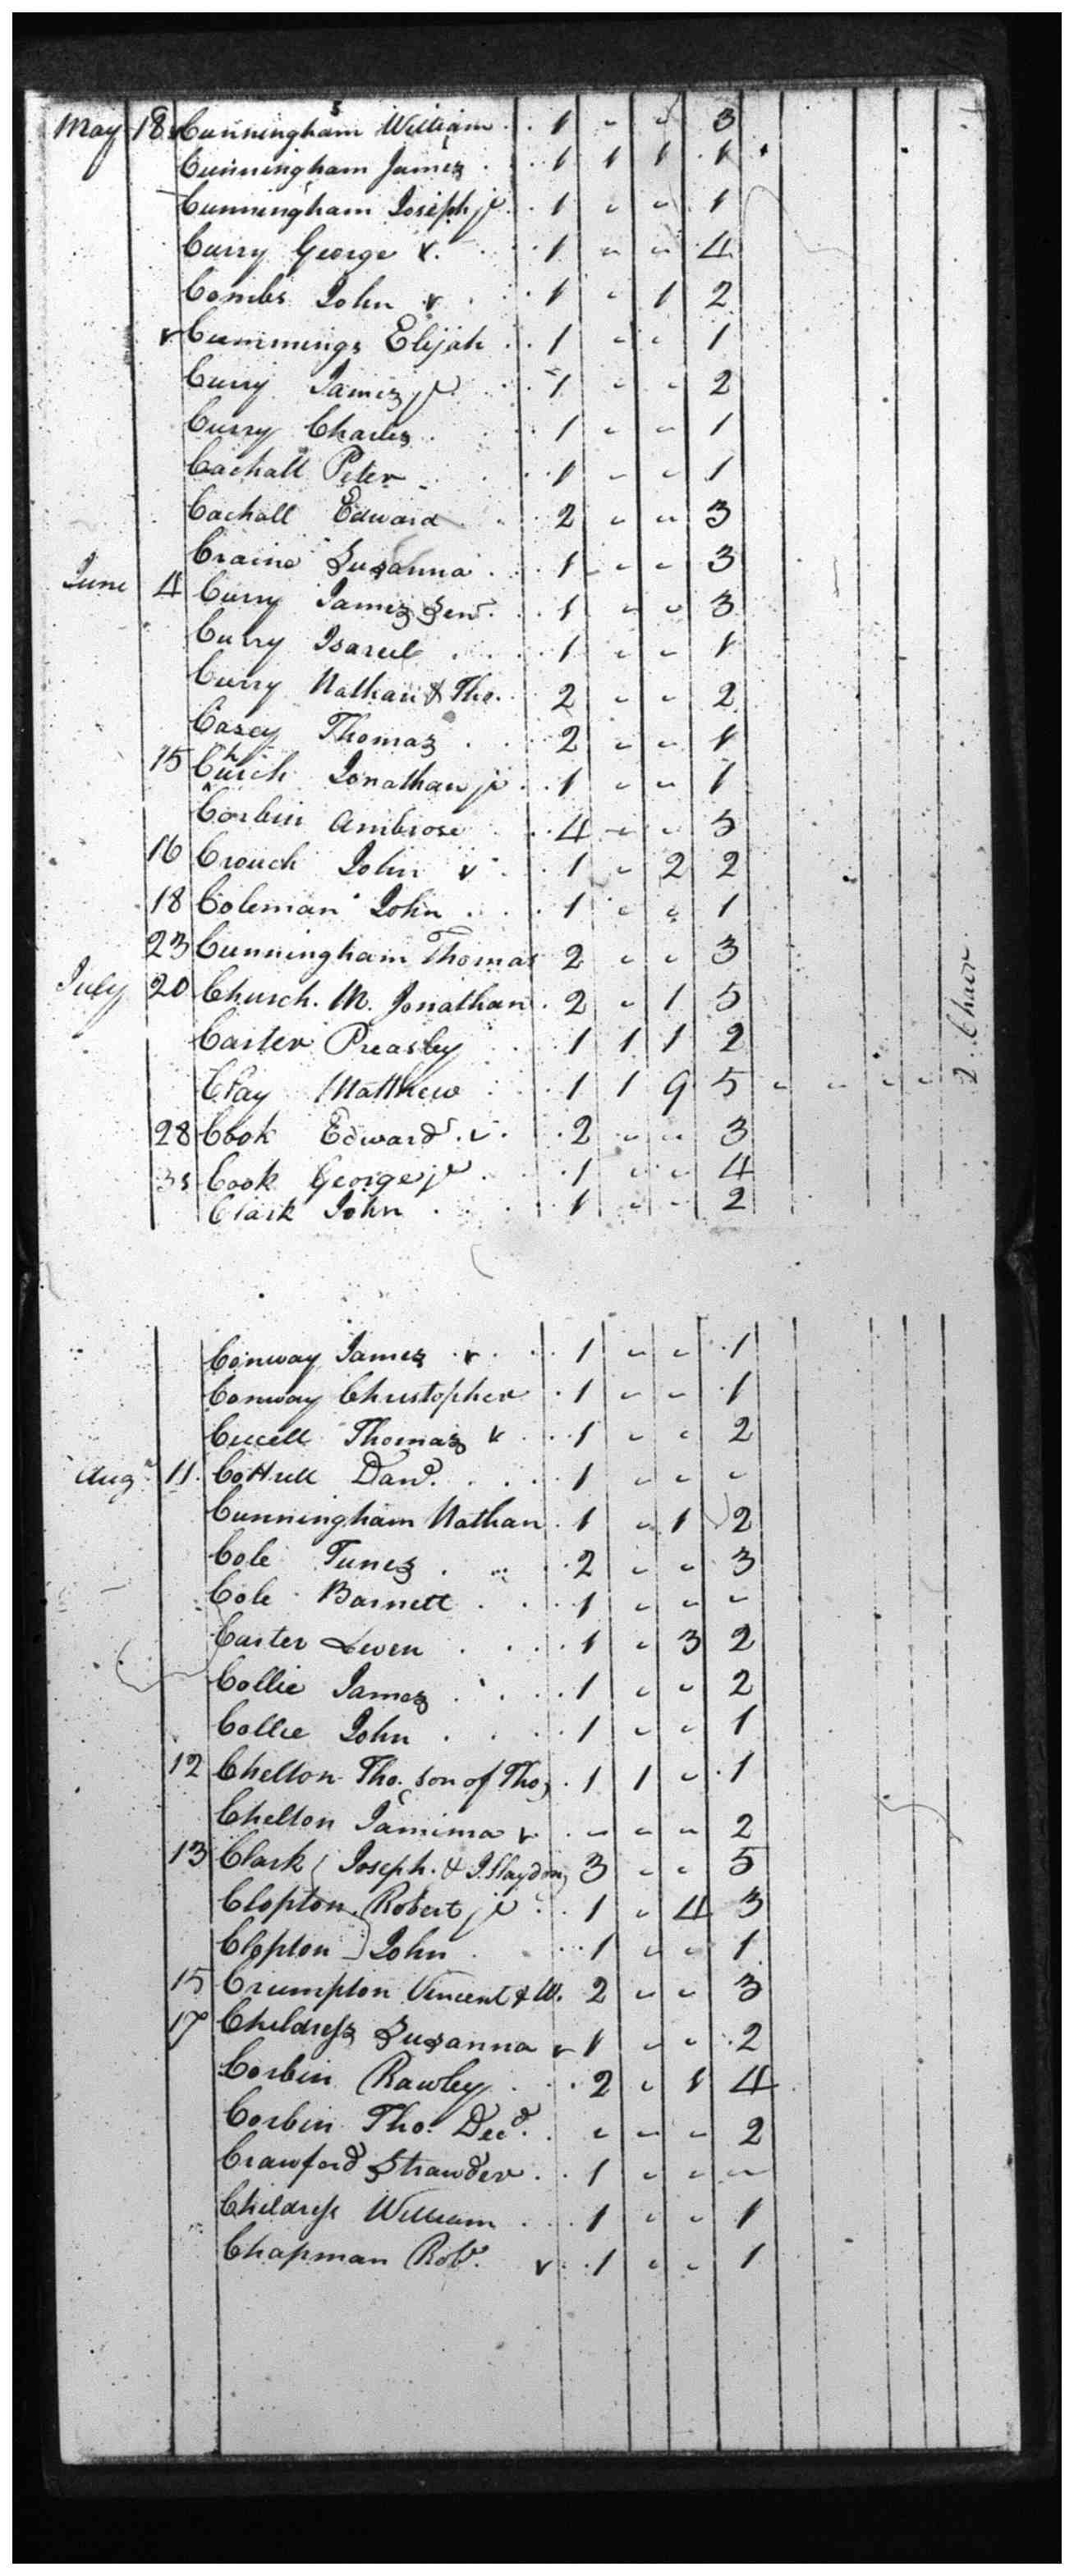 May 18 Cunningham William 1 - - 3
Cunningham James 1 1 1 1
Cunningham Joseph jr 1 - - 1
Curry George v 1 - - 4
Combs John v 1 - 1 2
v Cummings Elijah 1 - - 1
Curry James jr 1 - - 2
Curry Charles 1 - - 1
Cachall Peter 1 - - 1
Cachall Edward 2 - - 3
Craine Susanna 1 - - 3
June 4 Curry James Senr 1 - - 3
Curry Isarul 1 - - 1
Curry Nathan & Tho. 2 - - 2
Casey Thomas 2 - - 1
15 Jonathan jr 1 - - 1
Corbin Ambrose 4 - - 5
16 Crouch John v 1 - 2 2
18 Coleman John 1 - - 1
23 Cunningham Thomas 2 - - 3
July 20 Church. M. Jonathan 2 - 1 5
Carter Preasley 1 1 1 2
Clay Matthew 1 1 9 5 - - - - 2. Chair
28 Cook Edward v 2 - - 3
31 Cook George jr 1 - - 4
Clark John 1 - - 2
Conway James v 1 - - 1
Conway Christopher 1 - - 1
Thomas v 1 - - 2
Augt 11. Cottrell Dand. 1 - - -
Cunningham Nathan 1 - 1 2
Cole Tunes 2 - - 3
Cole Barnett 1 - - -
Carter Leven 1 - 3 2
Collie James 1 - - 2
Collie John 1 - - 1
12 Chelton Tho. son of Thos 1 1 - 1
Chelton Jamima v - - - 2
13 Clark Joseph. & J. Slaydon 3 - - 5
Clopton Robert jr 1 - 4 3
Clopton John 1 - - 1
15 Crumpton Vincent & W. 2 - - 3
17 Childress Susanna v 1 - - 2
Corbin Rawley 2 - 1 4
Corbin Tho. Decd. - - - 2
Crawford Strawder 1 - - -
Childress William 1 - - 1
Chapman Robt. v 1 - - 1